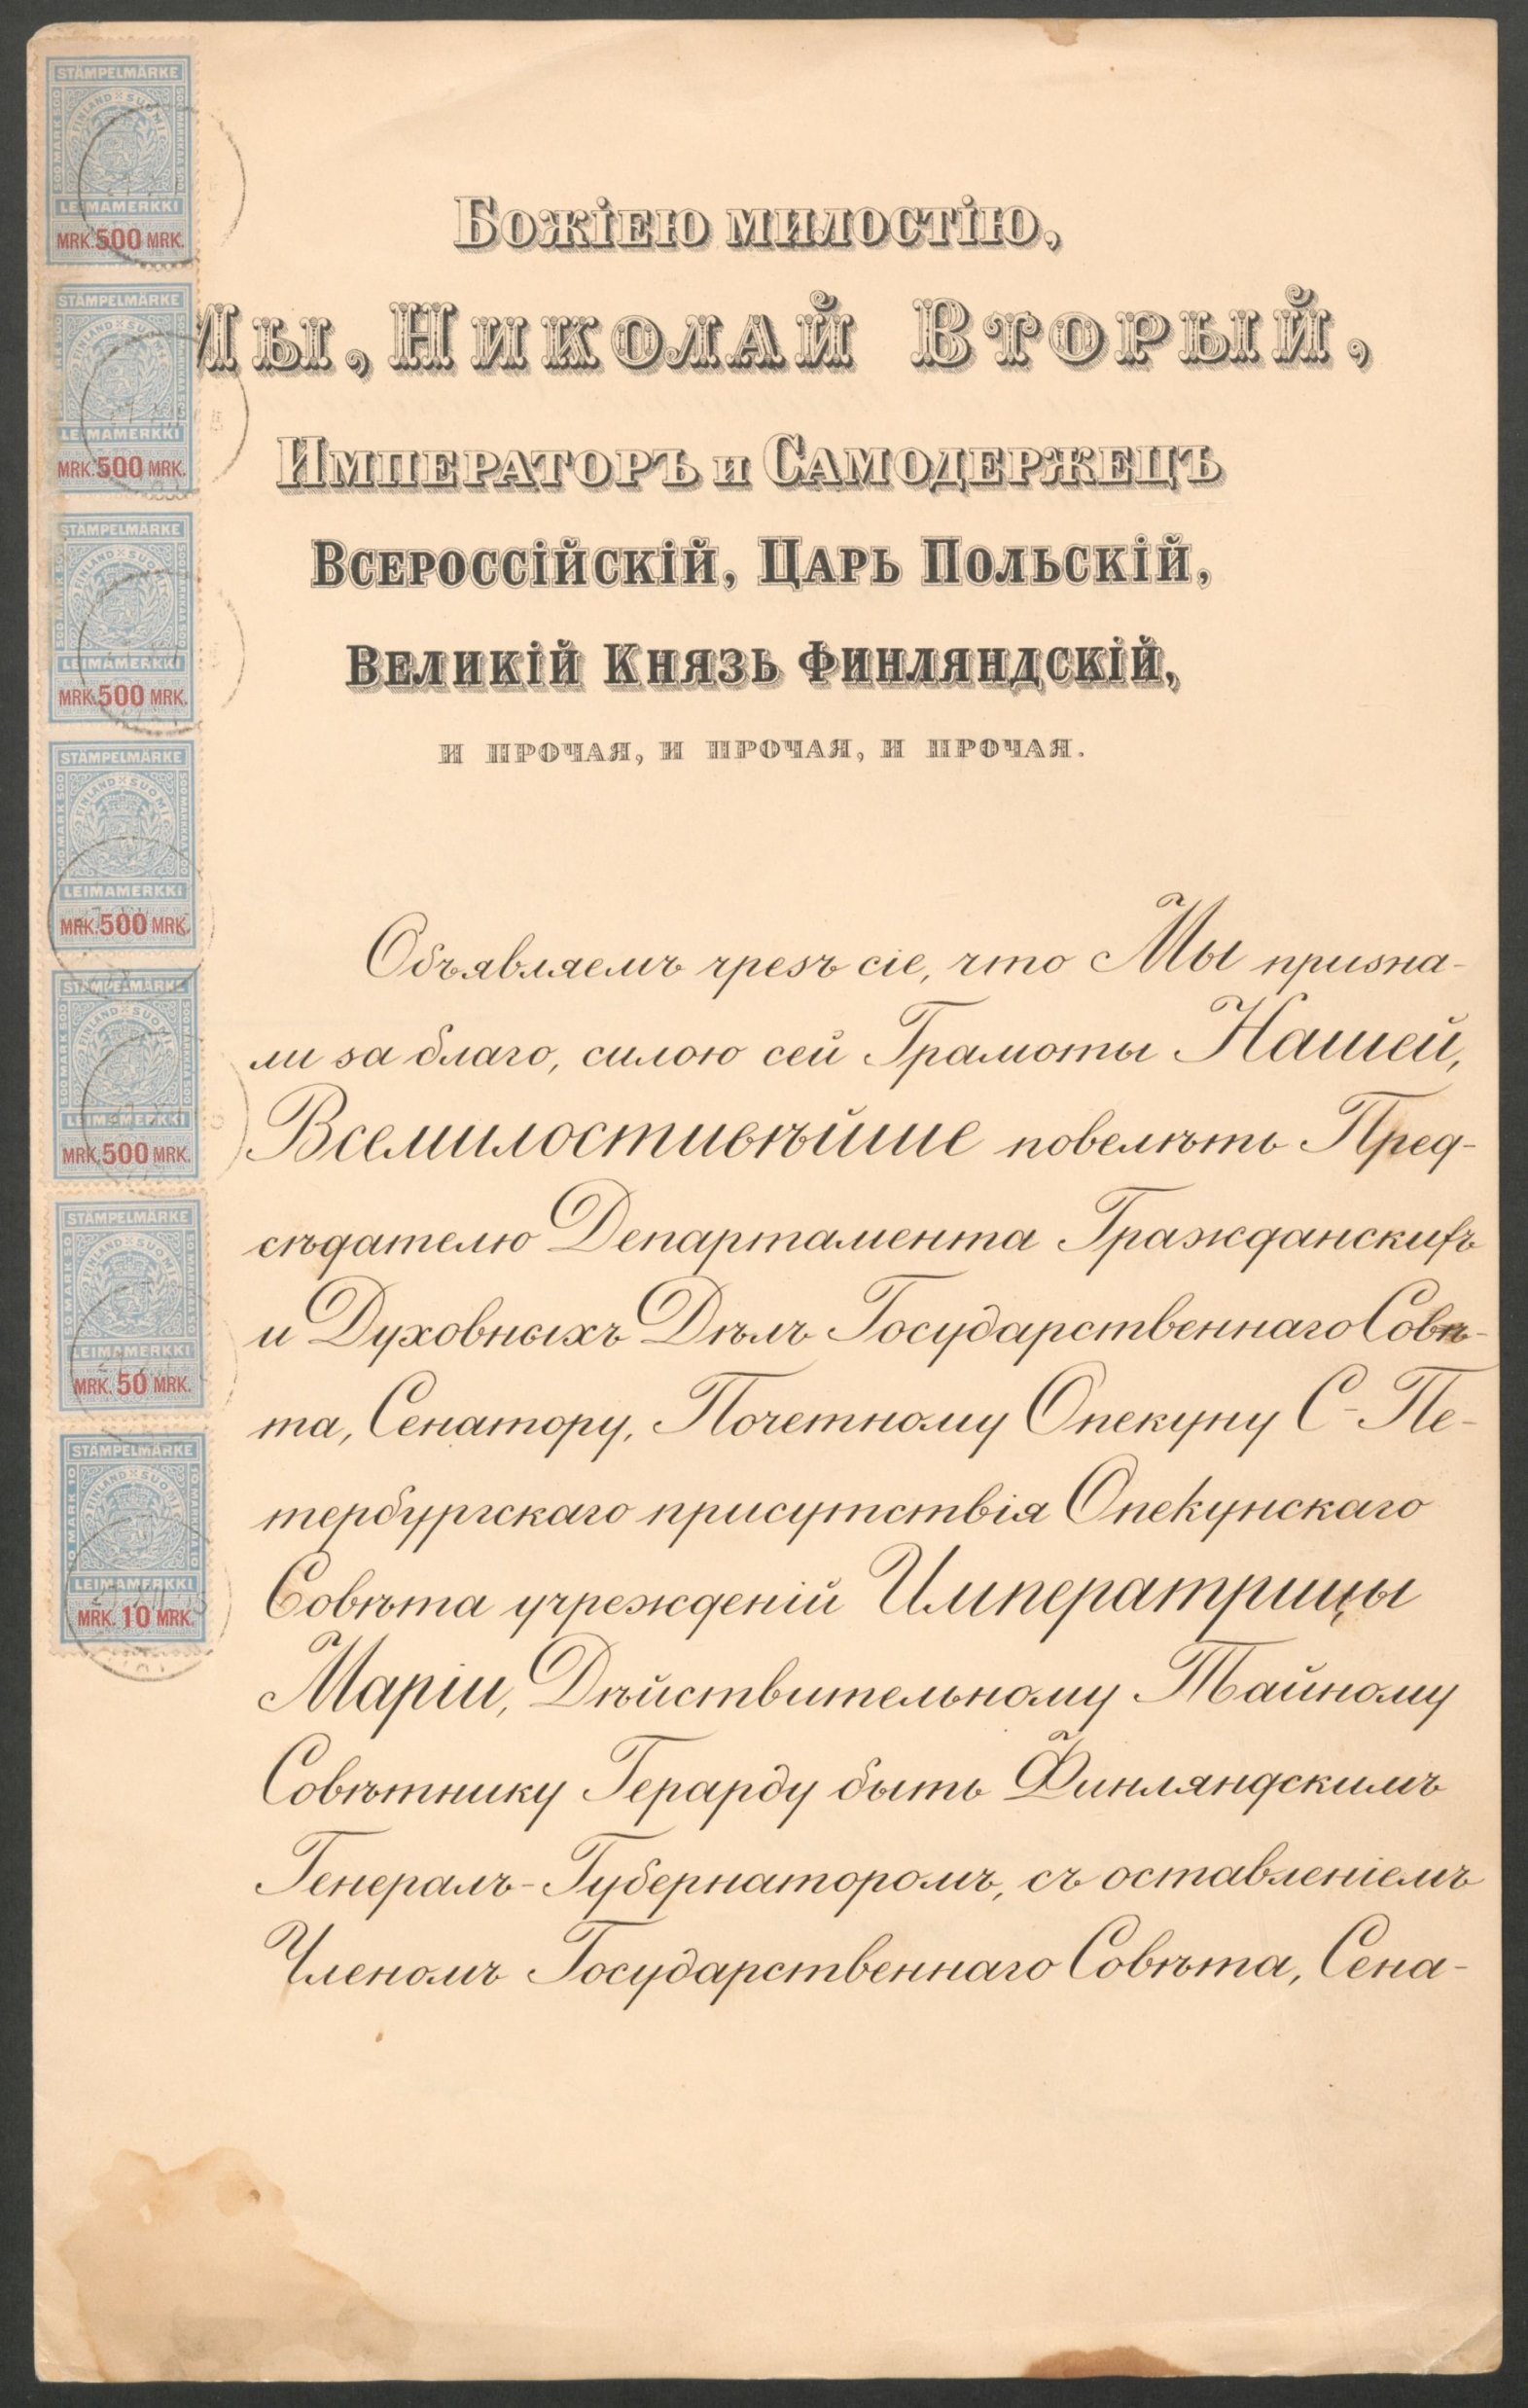 STÄMPELMÄRKE
FINLAND SUOMI
500 MARK 500
500 MARKKAA 500
LEIMAMERKKI
MRK. 500 MRK.
STÄMPELMÄRKE
FINLAND SUOMI
LEIMAMERKKI
MRK. 500 MRK.
STÄMPELMÄRKE
FINLAND SUOMI
500 MARK 500
500 MARKKAA 500
LEIMAMERKKI
MRK. 500 MRK.
STÄMPELMÄRKE
FINLAND SUOMI
500 MARK 500
500 MARKKAA 500
LEIMAMERKKI
MRK. 500 MRK.
STÄMPELMÄRKE
FINLAND SUOMI
500 MARK 500
500 MARKKAA 500
LEIMAMERKKI
MRK. 500 MRK.
STÄMPELMÄRKE
FINLAND SUOMI
50 MARK 50
50 MARKKAA 50
LEIMAMERKKI
MRK. 50 MRK.
STÄMPELMÄRKE
FINLAND SUOMI
10 MARK 10
10 MARKKAA 10
LEIMAMERKKI
MRK. 10 MRK.
Божіею милостію,
Мы, Николай Вторый,
Императоръ и Самодержецъ
Всероссійскій, Царь Польскій,
Великій Князь Финляндскій,
и прочая, и прочая, и прочая.
Объявляемъ чрезъ сіе, что Мы призна-
ли за благо, силою сей Грамоты Нашей,
Всемилостивѣйше повелѣть Пред-
сѣдателю Департамента Гражданскихъ
и Духовныхъ Дѣлъ Государственнаго Совѣ-
та, Сенатору, Почетному Опекуну С-Пе-
тербургскаго присутствія Опекунскаго
Совѣта учрежденій Императрицы
Маріи, Дѣйствительному Тайному
Совѣтнику Герарду быть Финляндскимъ
Генералъ-Губернаторомъ, съ оставленіемъ
Членомъ Государственнаго Совѣта, Сена-